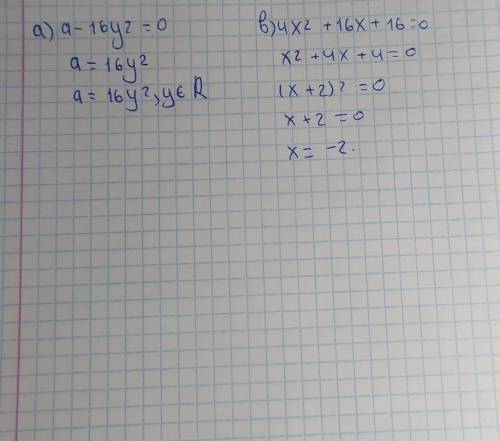 а) a - 16y² = 0
a = 16y²
a = 16y², y ∈ R
в) 4x² + 16x + 16 = 0
x² + 4x + 4 = 0
(x + 2)² = 0
x + 2 = 0
x = -2.